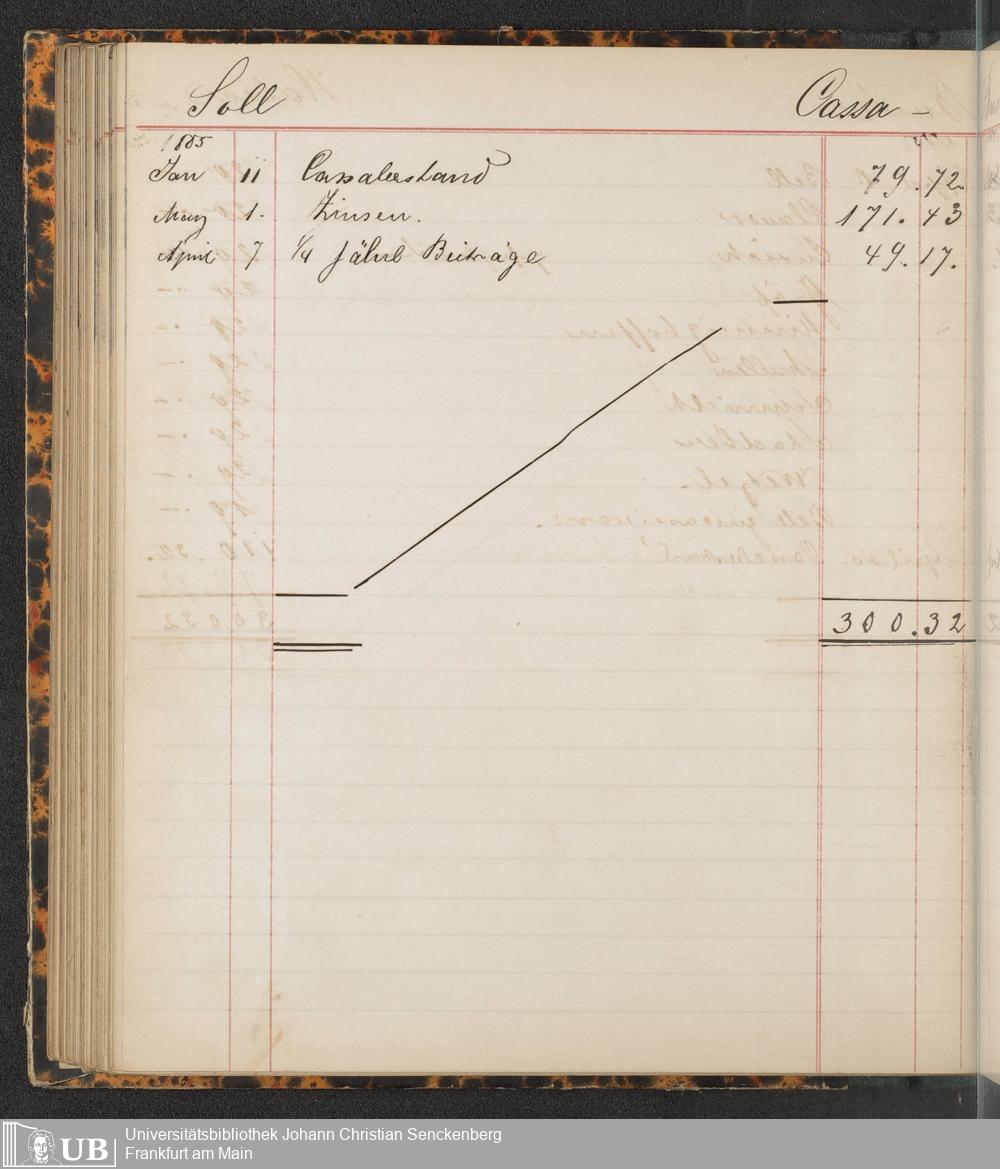 Soll Cassa -
1885
Jan 11 Cassabestand 79.72.
Marz 1. Zinsen. 171.43
April 7 1/4 Jährl Beiträge 49.17.
300.32
UB Universitätsbibliothek Johann Christian Senckenberg
Frankfurt am Main